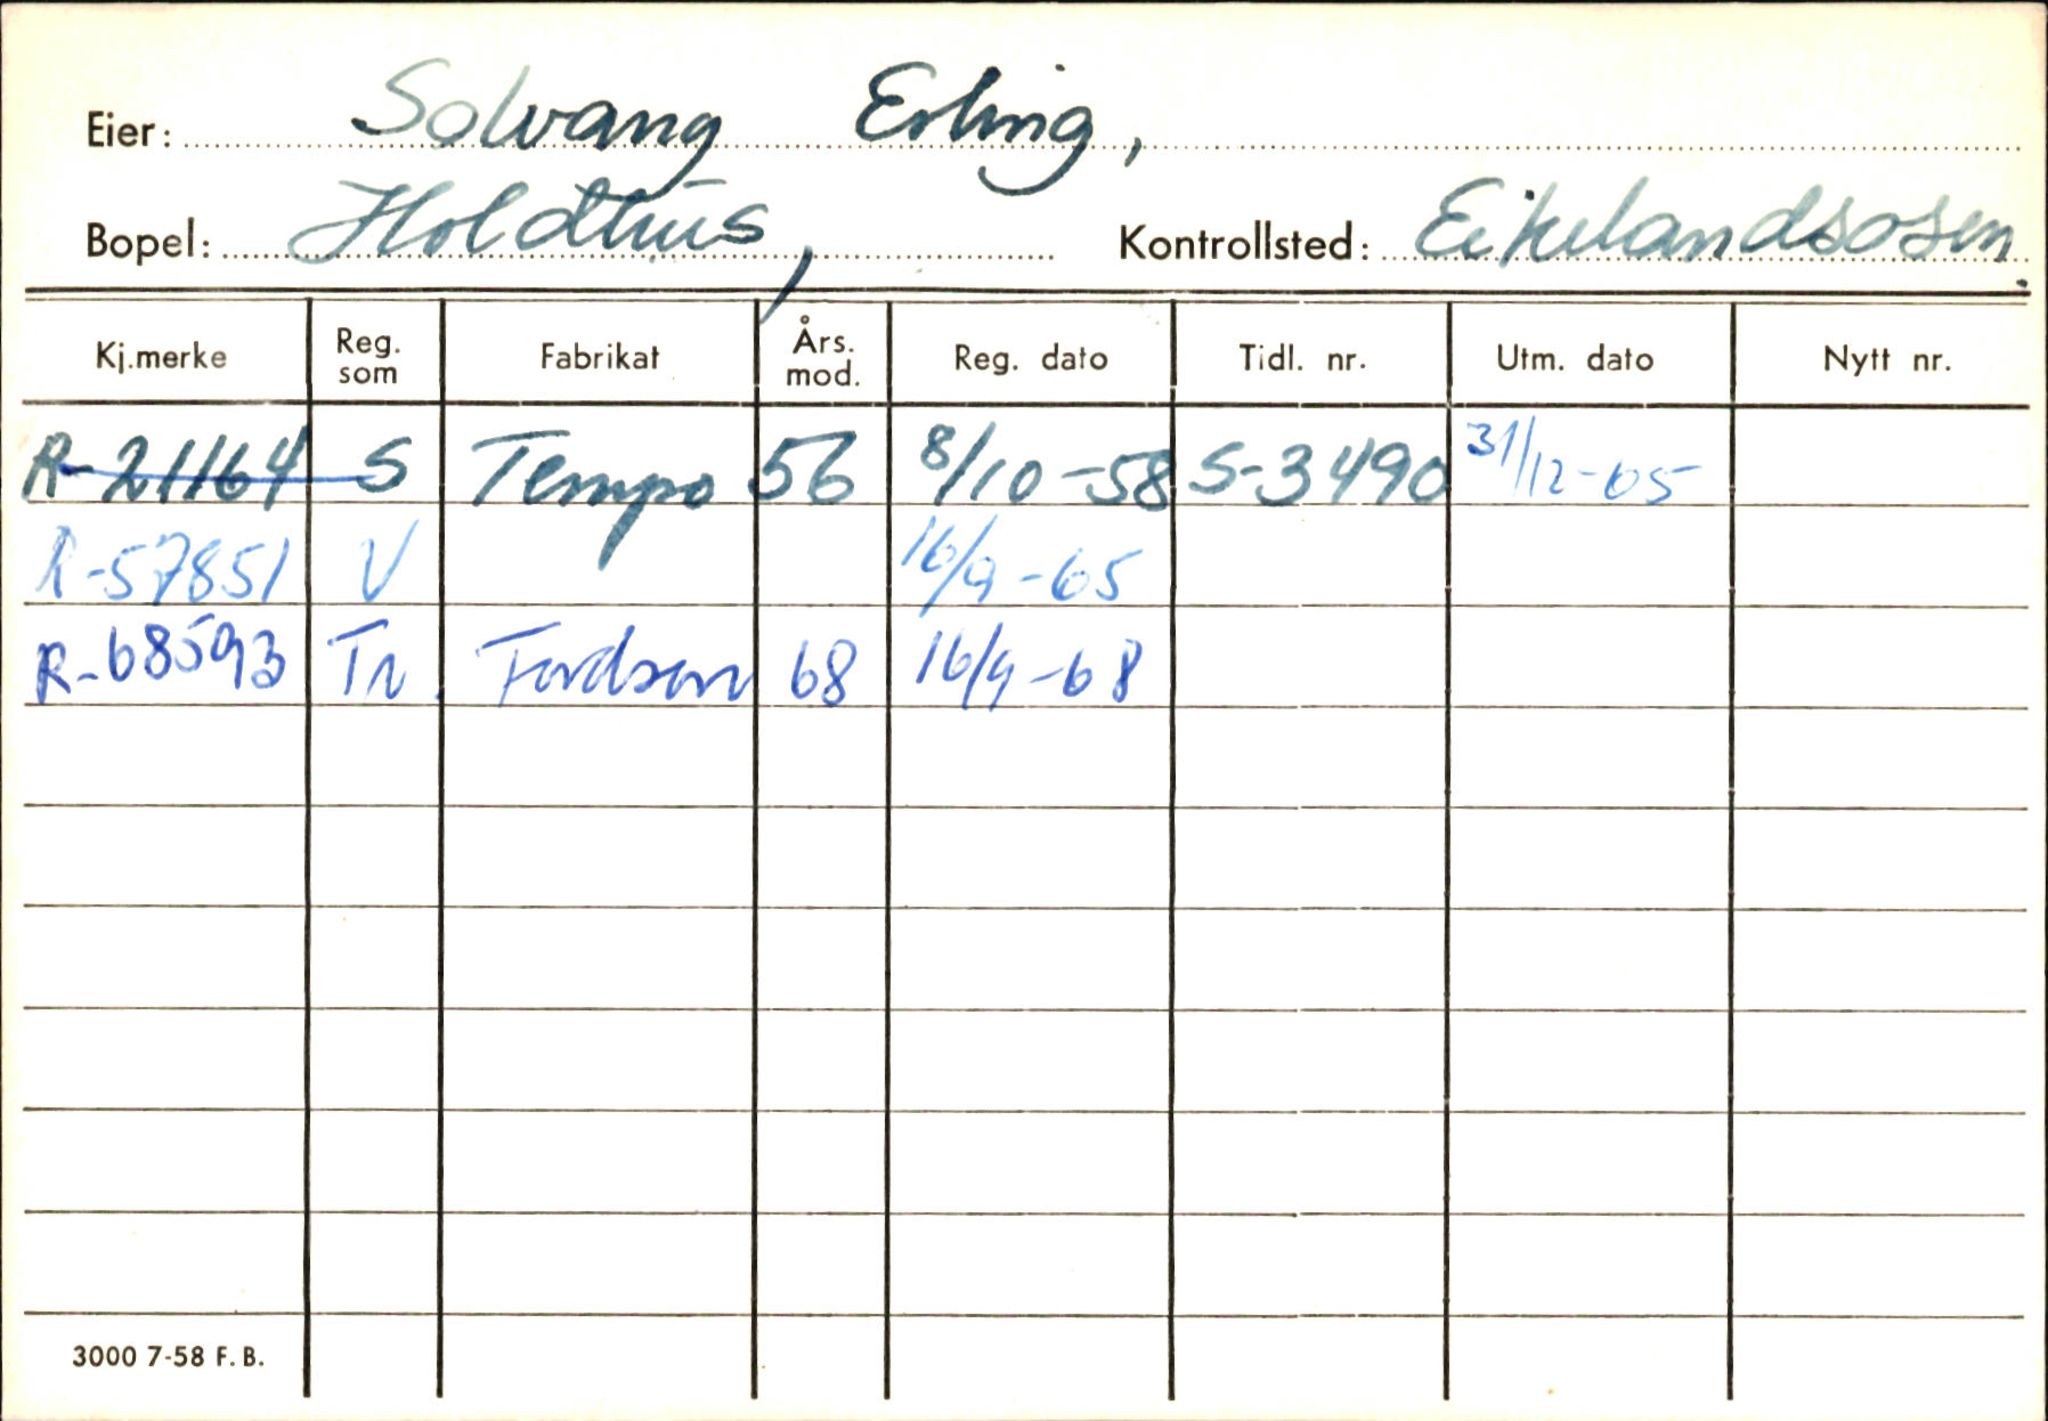 Eier: Solvang Erling,
Bopel: Holdhus, Kontrollsted: Eikelandsosen.
Kj.merke Reg. som Fabrikat Års. mod. Reg. dato Tidl. nr. Utm. dato Nytt nr.
R-21164 S Tempo 56 8/10-58 S-3490 31/12-65
R-57851 V 16/9-65
R-68593 Tr. Fordson 68 16/9-68
3000 7-58 F. B.